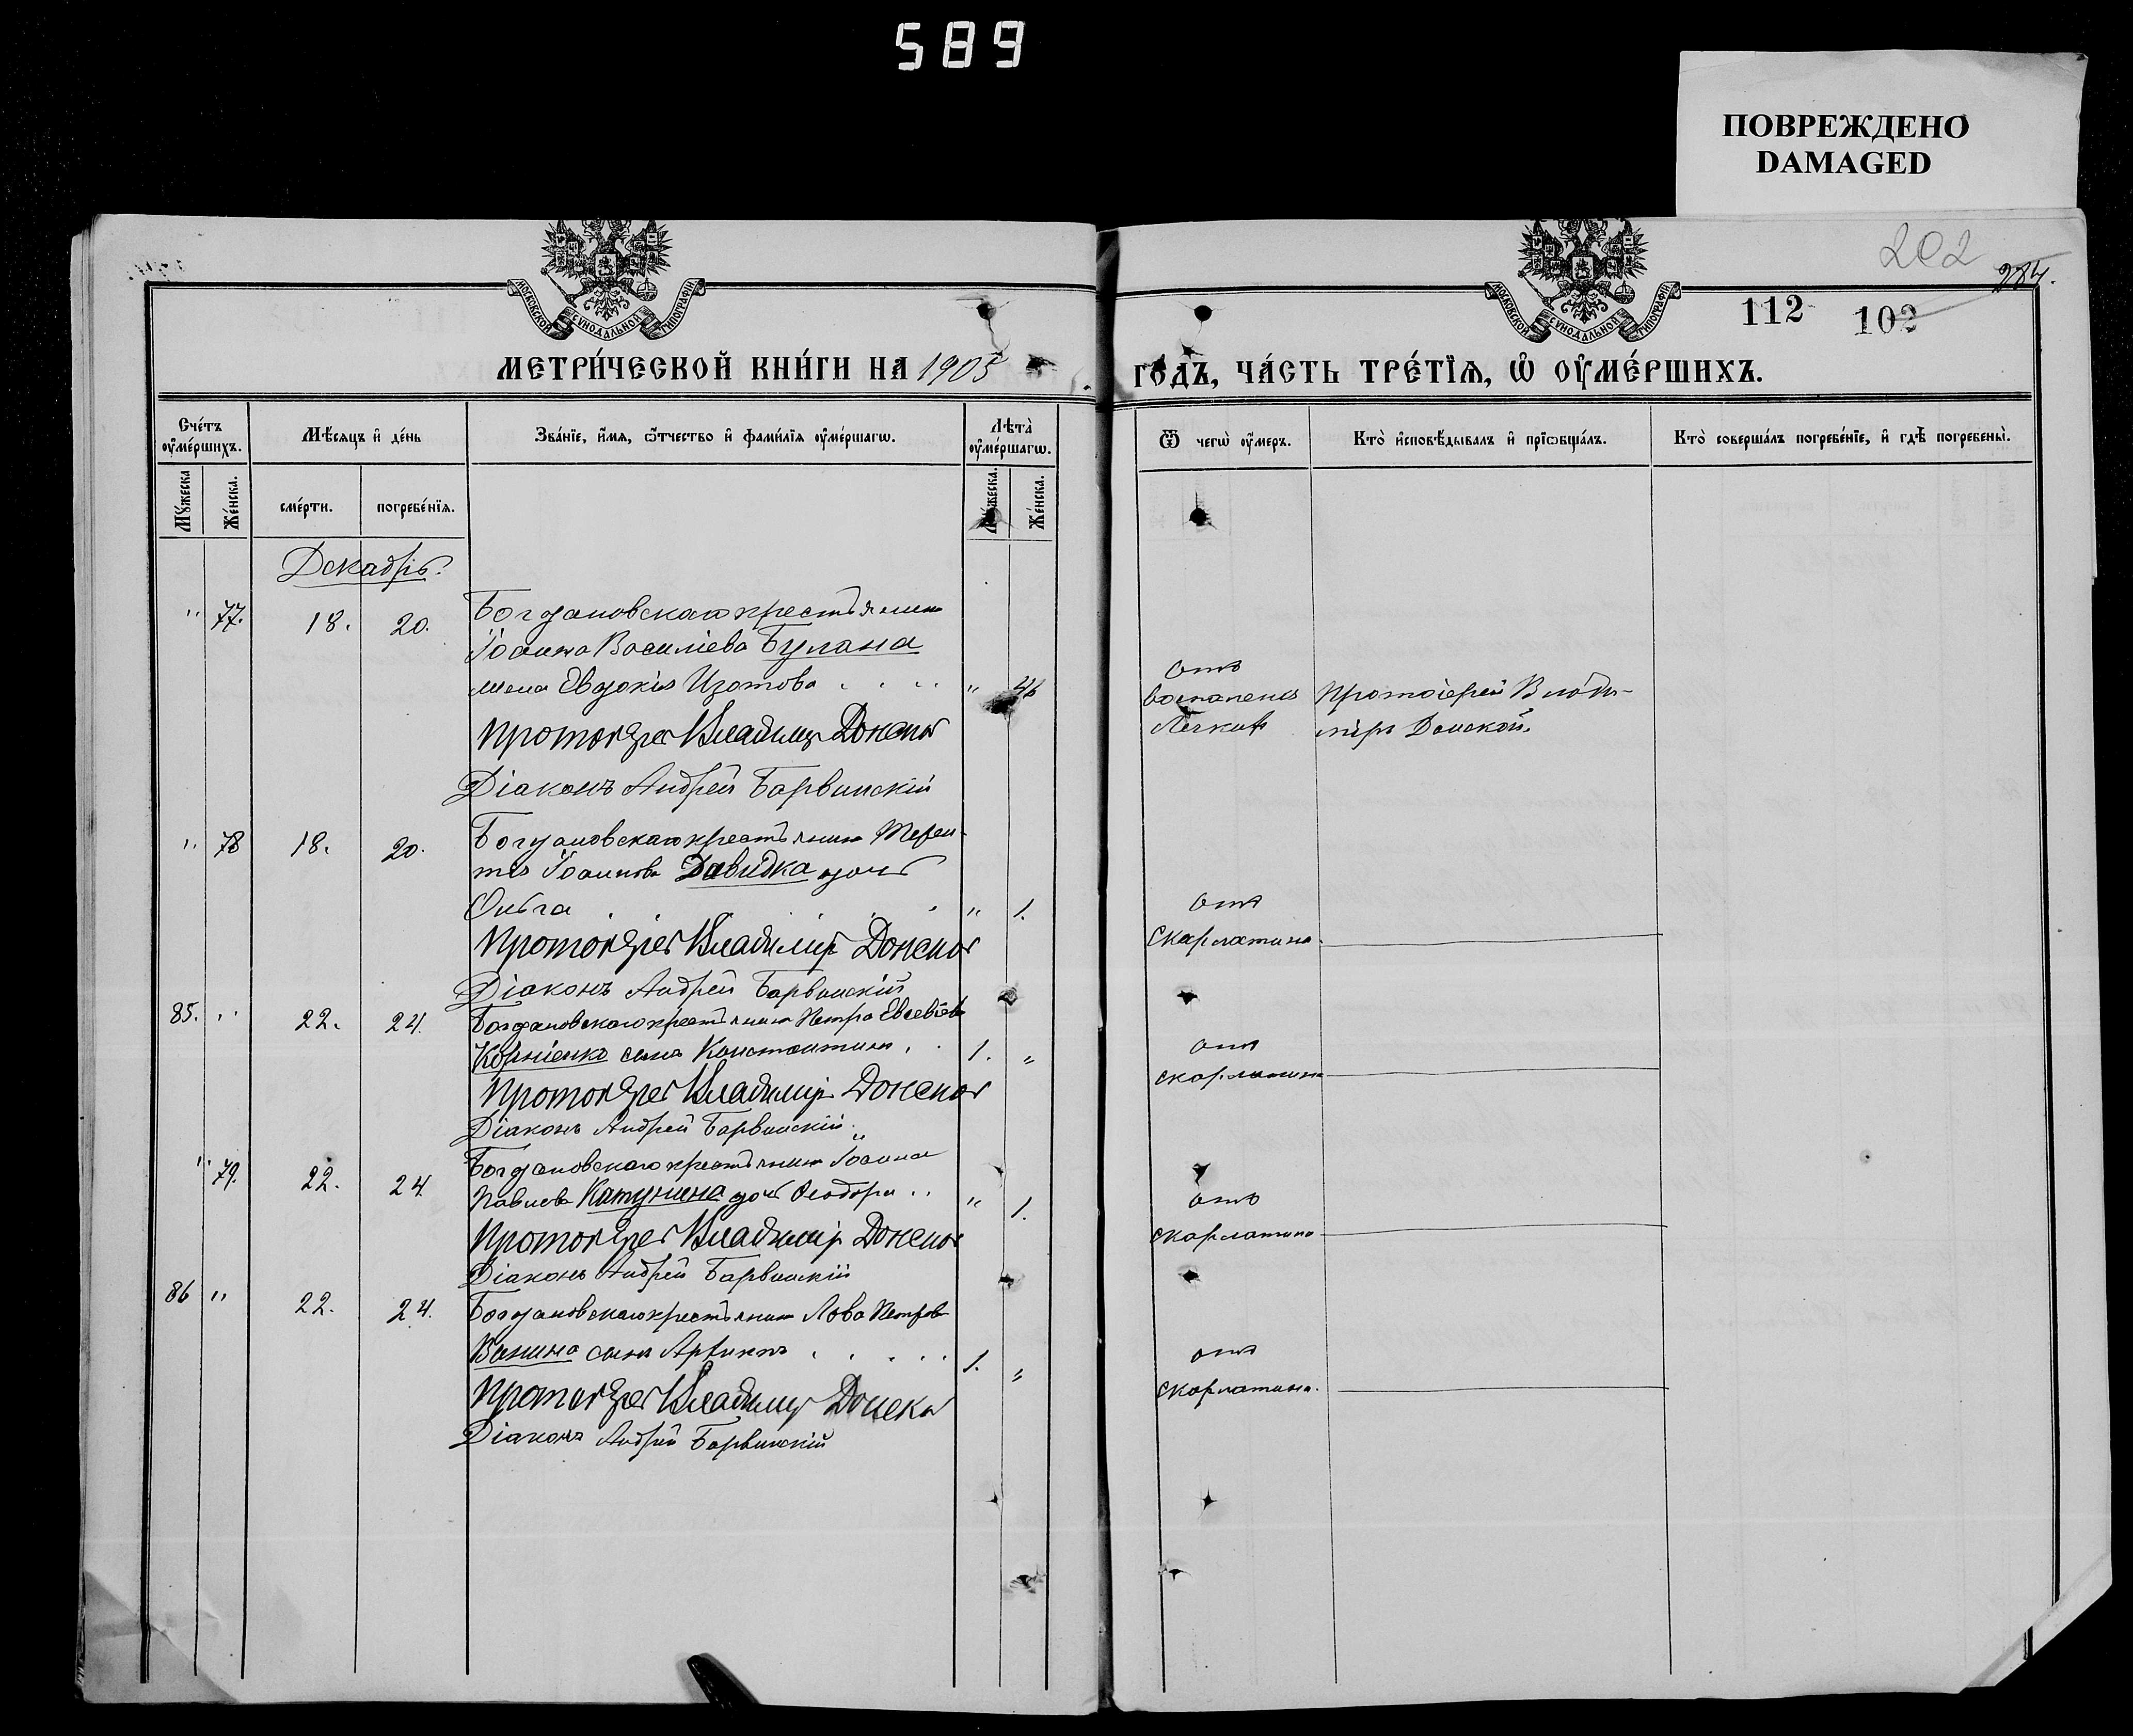 589
ПОВРЕЖДЕНО
DAMAGED
202
284.
112 102
МОСКОВСКОЙ СѴНОДАЛЬНОЙ ТИПОГРАФІИ
МОСКОВСКОЙ СѴНОДАЛЬНОЙ ТИПОГРАФІИ
МЕТРИ́ЧЕСКОЙ КНИ́ГИ НА 1905
ГО́ДЪ, ЧА́СТЬ ТРЕ́ТЇѦ, Ѡ҆ ОУ҆МЕ́РШИХЪ.
Сче́тъ оу҆ме́ршихъ.
Мѣ́сѧцъ и҆ де́нь
Зва́нїе, и҆́мѧ, ѻ҆́тчество и҆ фами́лїѧ оу҆ме́ршагѡ.
Лѣта̀ оу҆ме́ршагѡ.
Ѿ чегѡ̀ оу҆́меръ.
Кто̀ и҆сповѣ́дывалъ и҆ прїѡбща́лъ.
Кто̀ соверша́лъ погребе́нїе, и҆ гдѣ̀ погребены̀.
Мꙋ́жеска
Же́нска.
сме́рти.
погребе́нїѧ.
Мꙋ́жеска.
Же́нска.
Декабрь.
" 77. 18. 20. Богдановскаго крестьянина
Іоанна Василіева Булана
жена Евдокія Изотова . . . . "
отъ
воспаленія Протоіерей Влади-
Легкихъ міръ Донской.
Протоіерей Владиміръ Донской
Діаконъ Андрей Барвинскій
" 78 18. 20. Богдановскаго крестьянина Терен-
тія Іоаннова Давидка дочь
Ольга . . . . " 1.
отъ
скарлатины.
Протоіерей Владиміръ Донской
Діаконъ Андрей Барвинскій
85. " 22. 24. Богдановскаго крестьянина Петра Евсевіева
Корніенко сынъ Константинъ . . 1. "
отъ
скарлатины
Протоіерей Владиміръ Донской
Діаконъ Андрей Барвинскій.
" 79. 22. 24. Богдановскаго крестьянина Іоанна
Павлова Катунина дочь Ѳеодора . . " 1.
отъ
скарлатины
Протоіерей Владиміръ Донской
Діаконъ Андрей Барвинскій
86 " 22. 24. Богдановскаго крестьянина Льва Петрова
Ванина сынъ . . . . . 1. "
отъ
скарлатины.
Протоіерей Владиміръ Донской
Діаконъ Андрей Барвинскій